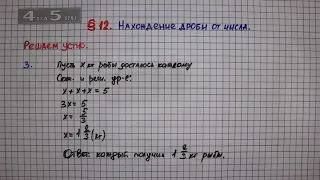 4 на 5.ru
§ 12. Нахождение дроби от числа.
Решаем устно.
3. Пусть x кг рыбы досталось каждому
Сост. и реш. ур-е:
x + x + x = 5
3x = 5
x = 5/3
x = 1 2/3 (кг)
Ответ: каждый получил 1 2/3 кг рыбы.